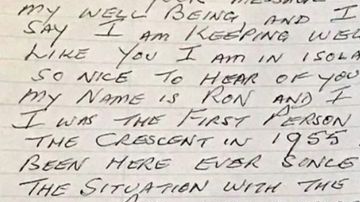 MY WELL BEING, AND I
SAY I AM KEEPING WELL
LIKE YOU I AM IN ISOLA
SO NICE TO HEAR OF YOU
MY NAME IS RON AND I
I WAS THE FIRST PERSON
THE CRESCENT IN 1955
BEEN HERE EVER SINCE
THE SITUATION WITH THE